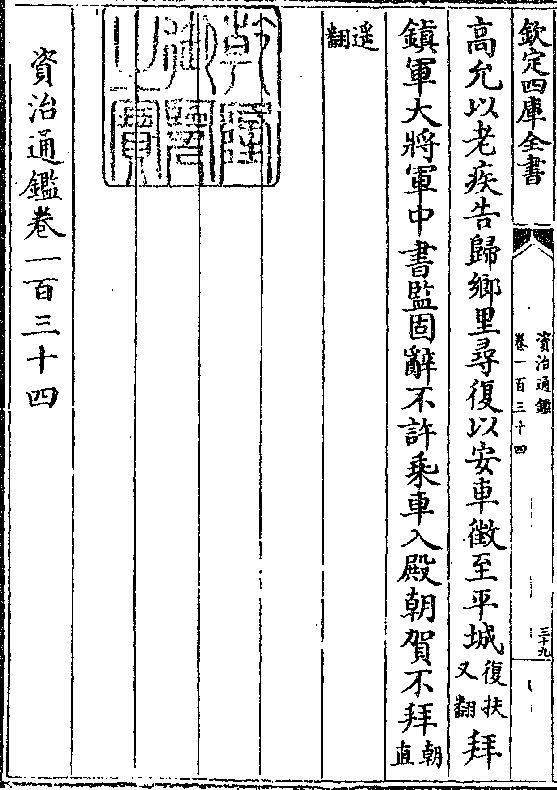 欽定四庫全書
資治通鑑
卷一百三十四
三十九
高允以老疾告歸鄉里尋復以安車徵至平城復扶又翻拜
鎮軍大將軍中書監固辭不許乘車入殿朝賀不拜朝直
遥翻
乾隆御覽之寶
資治通鑑卷一百三十四